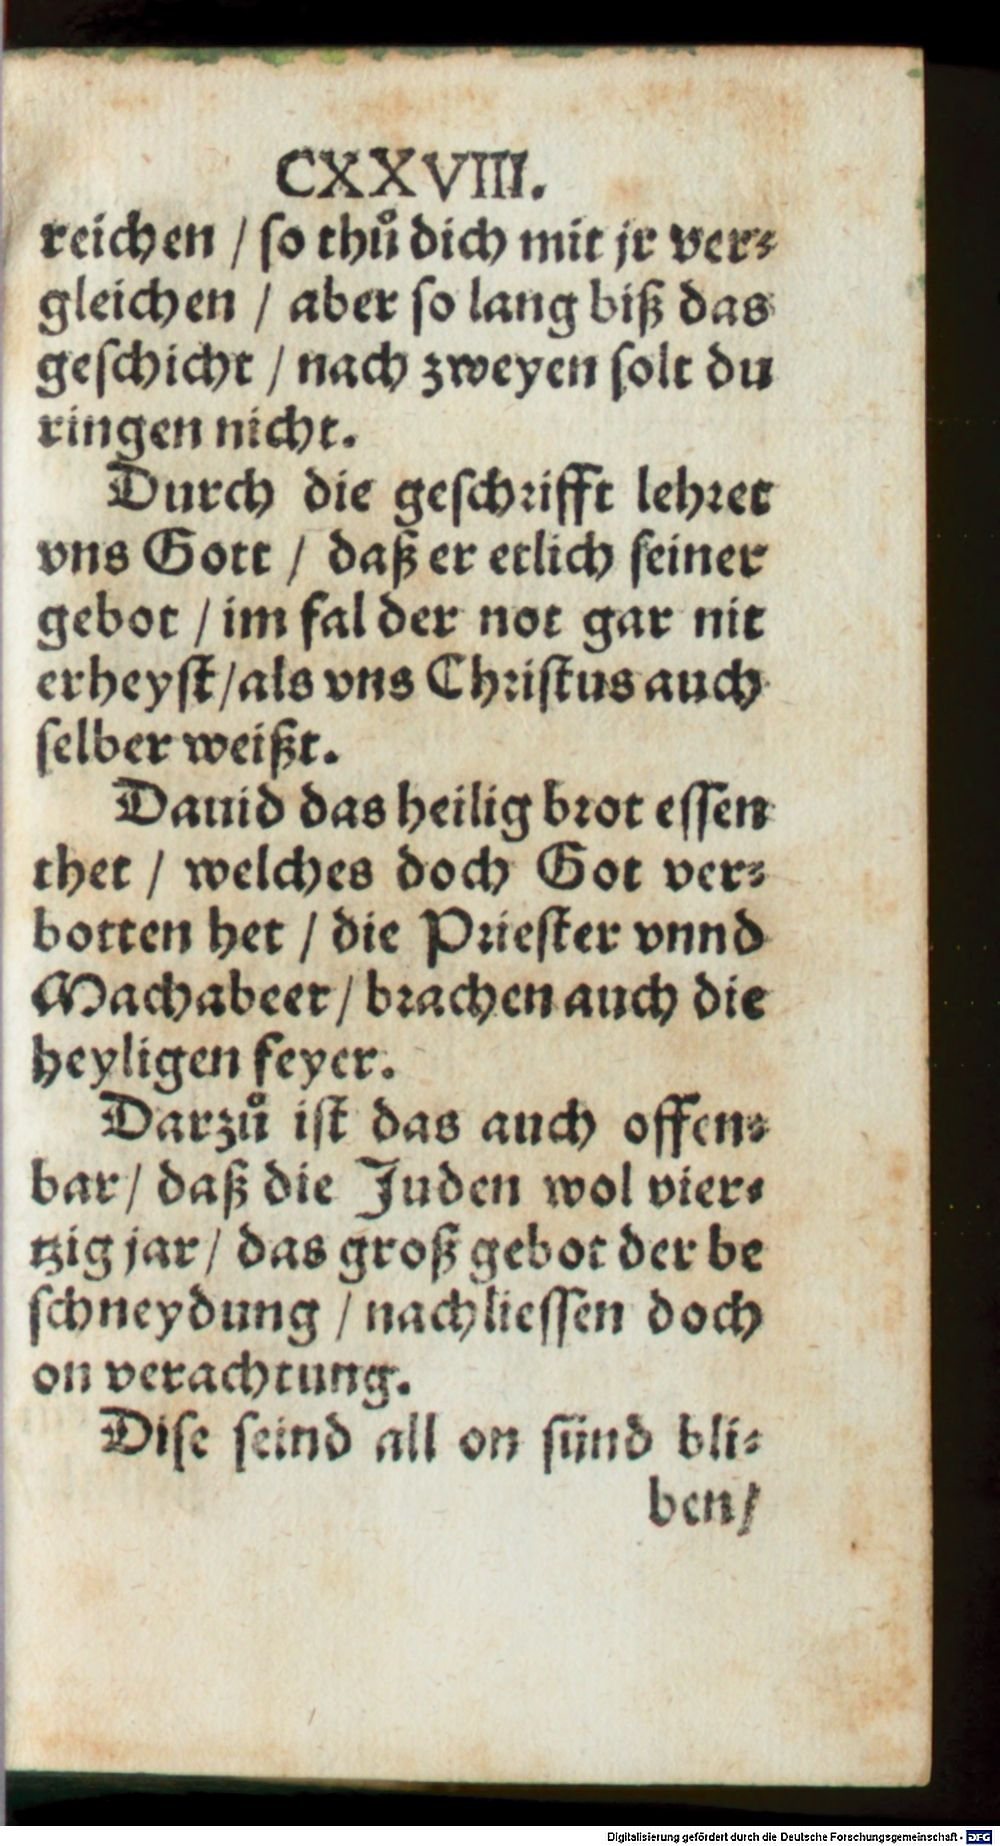 CXXVIII.
reichen / so thuͦ dich mit jr ver⸗
gleichen / aber so lang biß das
geschicht / nach zweyen solt du
ringen nicht.
Durch die geschrifft lehret
vns Gott / daß er etlich seiner
gebot / im fal der not gar nit
erheyst / als vns Christus auch
selber weißt.
Dauid das heilig brot essen
thet / welches doch Got ver⸗
botten het / die Priester vnnd
Machabeer / brachen auch die
heyligen feyer.
Darzuͦ ist das auch offen⸗
bar / daß die Juden wol vier⸗
tzig jar / das groß gebot der be
schneydung / nachliessen doch
on verachtung.
Dise seind all on sünd bli⸗
ben /
Digitalisierung gefördert durch die Deutsche Forschungsgemeinschaft - DFG